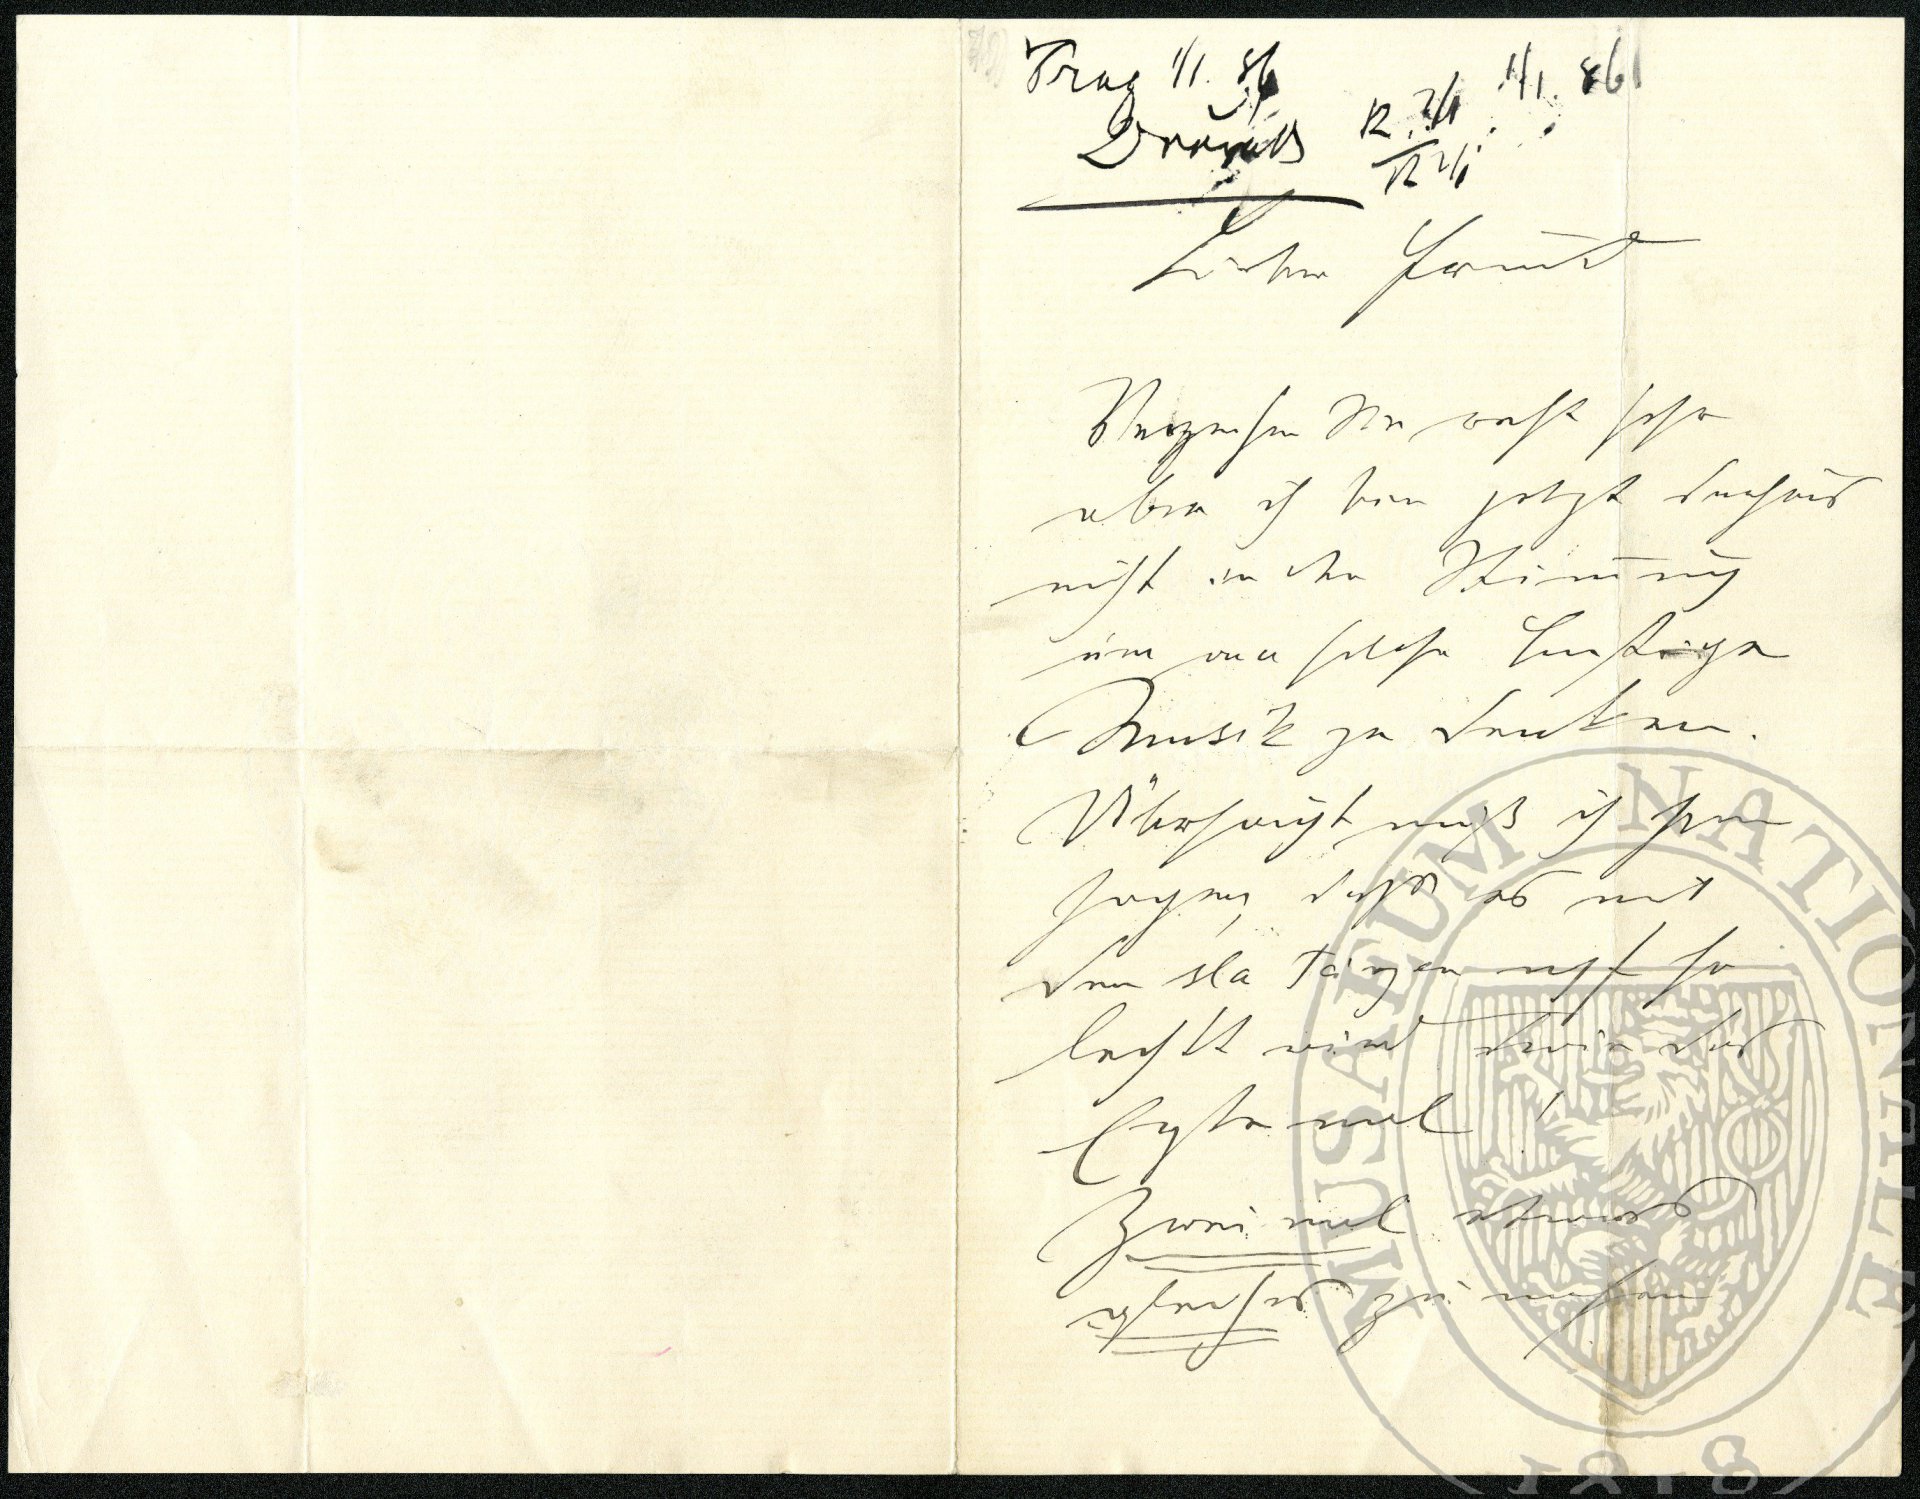 Prag 1/1. 86
1/1. 86
Dvořák
R. 2/1
R 2/1
Lieber Freund
Verzeihen Sie recht sehr
aber ich bin jetzt durchaus
nicht in der Stimmung
um an solche lustige
Musik zu denken.
Überhaupt muß ich Ihnen
sagen, daß es mit
den sla Tänzen nicht so
leicht wird wie das
erste mal!
Zwei mal etwas
gleiches zu machen
MUSAEUM NATIONALE
1818